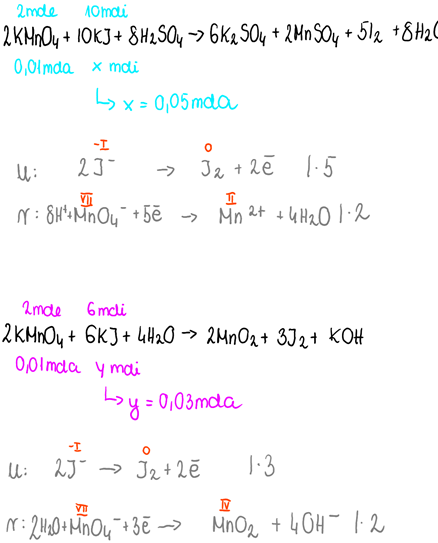 2mole 10moli
2KMnO₄ + 10KJ + 8H₂SO₄ → 6K₂SO₄ + 2MnSO₄ + 5I₂ + 8H₂O
0,01mola x moli
↳ x = 0,05mola
-I 0
U: 2J⁻ → J₂ + 2ē |·5
VII II
r: 8H⁺+MnO₄⁻ + 5ē → Mn²⁺ + 4H₂O |·2
2mole 6moli
2KMnO₄ + 6KJ + 4H₂O → 2MnO₂ + 3J₂ + KOH
0,01mola y moli
↳ y = 0,03mola
-I 0
U: 2J⁻ → J₂ + 2ē |·3
VII IV
r: 2H₂O+MnO₄⁻ + 3ē → MnO₂ + 4OH⁻ |·2